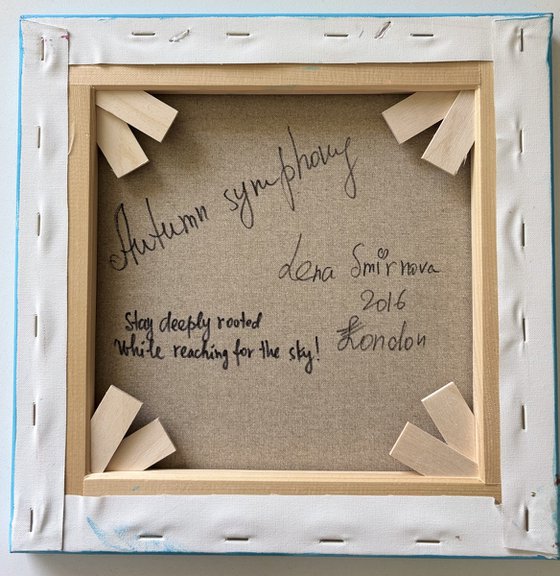 Autumn symphony
Lena Smirnova
2016
London
Stay deeply rooted
While reaching for the sky!